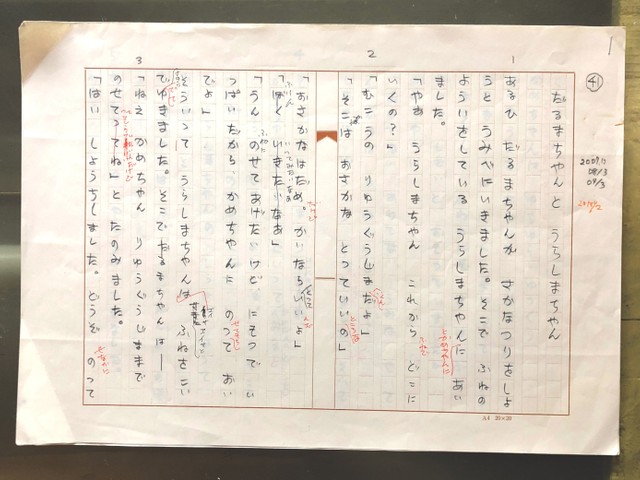 1
2
3
41
だるまちゃんと うらしまちゃん
あるひ だるまちゃんが さかなつりをしよ
うと うみべにいきました。そこで ふねの
よういをしている うらしまちゃんに あい
ました。
「やあ うらしまちゃん これから どこに
いくの?」
「むこうの りゅうぐうじまだよ」
「そこは おさかな とっていいの」
「おさかなはだめ。かいならいいよ」
「ぼく いきたいなあ」
いってみたいなあ
「うん のせてあげたいけど にもつで い
っぱいだから かめちゃんに のって おい
でよ」
そういって うらしまちゃんは ふねをこい
でゆきました。そこで だるまちゃんは
「ねえ かめちゃん りゅうぐうじままで
のせてってね」と たのみました。
「はい しょうちしました。どうぞ のって
A4 20×20